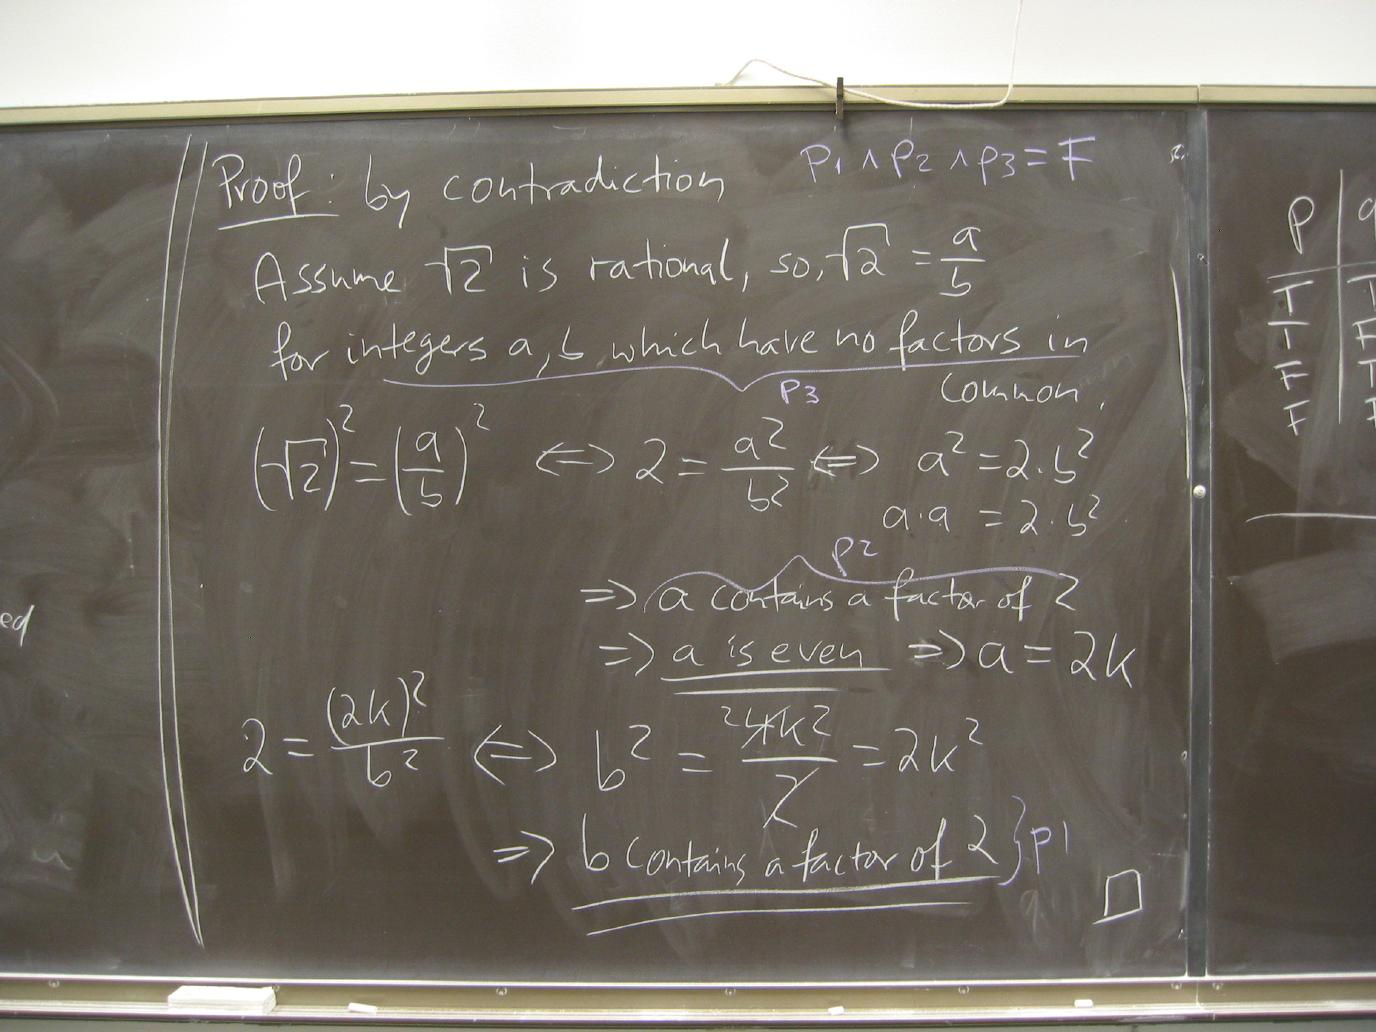 Proof: by contradiction P1 ∧ P2 ∧ P3 = F
Assume √2 is rational, so, √2 = a/b
for integers a, b which have no factors in
common.
P3
(√2)² = (a/b)² <=> 2 = a²/b² <=> a² = 2·b²
a·a = 2·b²
P2
=> a contains a factor of 2
=> a is even => a = 2k
2 = (2k)²/b² <=> b² = 24k²/2 = 2k²
=> b contains a factor of 2 } P1
□
ed
P | q
T | T
T | F
F | T
F | F